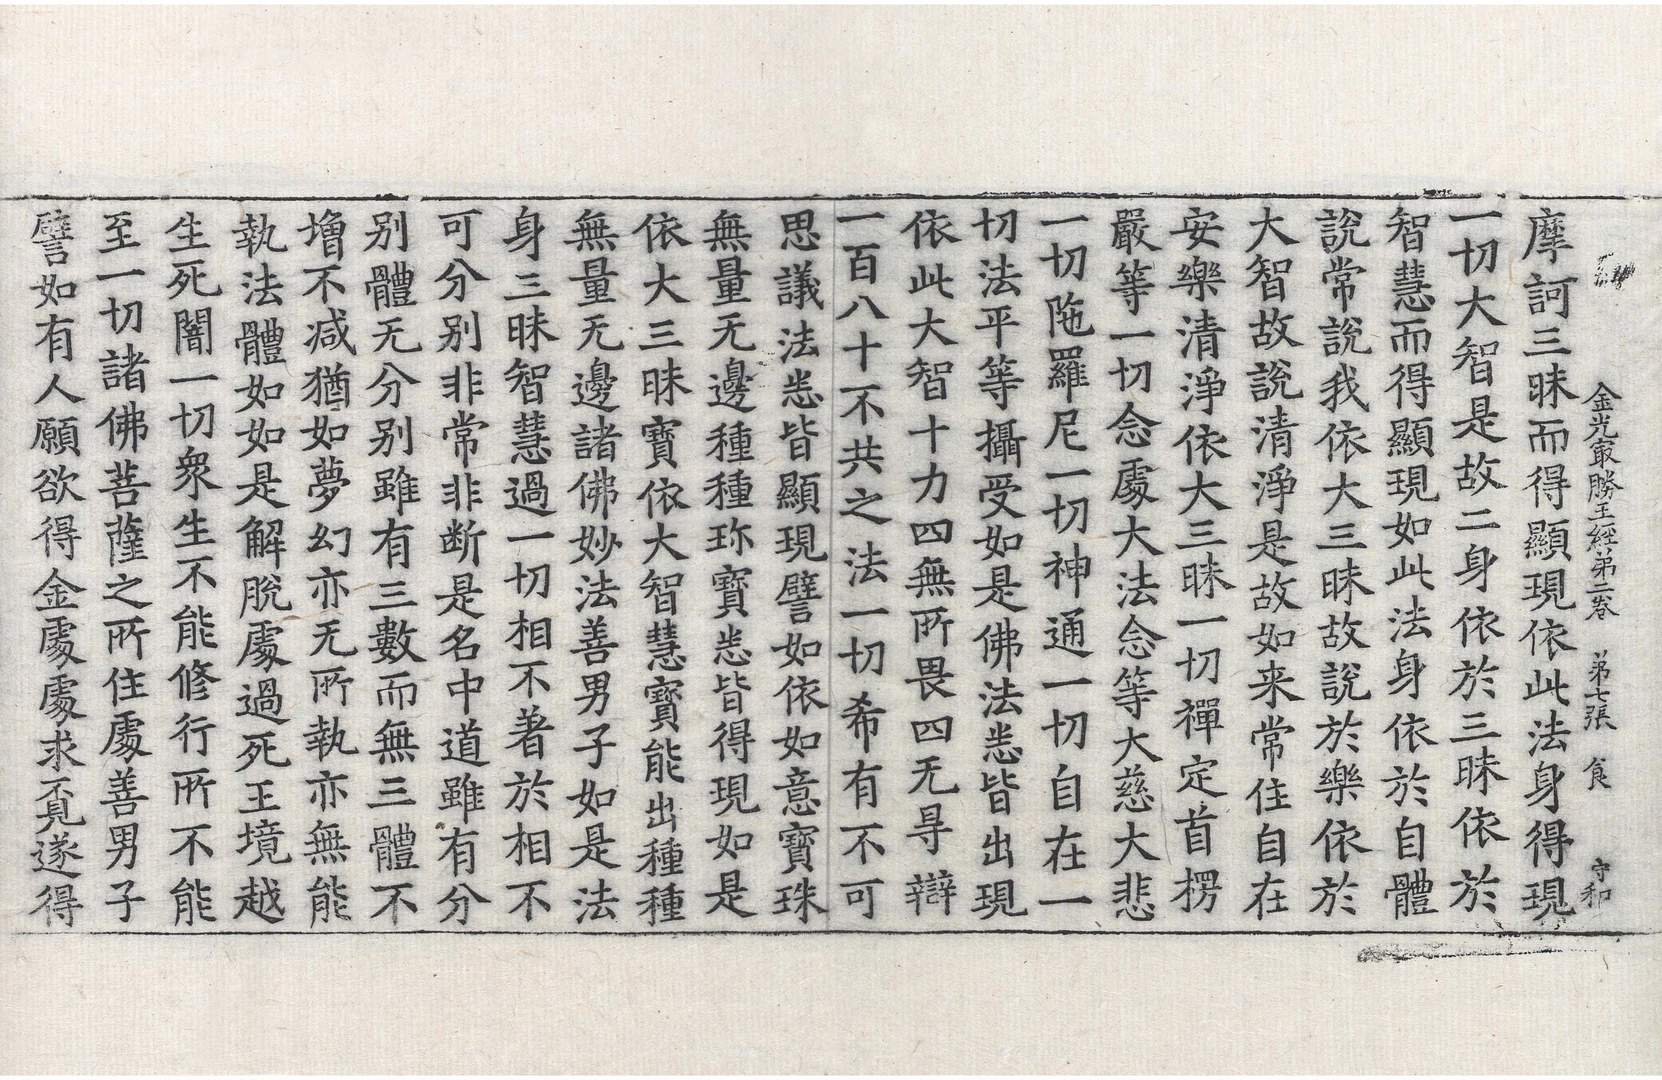 金光冣勝王經第二卷　第七張　食　守和
摩訶三昧而得顯現依此法身得現
一切大智是故二身依於三昧依於
智慧而得顯現如此法身依於自體
說常說我依大三昧故說於樂依於
大智故說清淨是故如来常住自在
安樂清淨依大三昧一切禪定首楞
嚴等一切念處大法念等大慈大悲
一切陁羅尼一切神通一切自在一
切法平等攝受如是佛法悉皆出現
依此大智十力四無所畏四无㝵辯
一百八十不共之法一切希有不可
思議法悉皆顯現譬如依如意寶珠
無量无邊種種珎寶悉皆得現如是
依大三昧寶依大智慧寶能出種種
無量无邊諸佛妙法善男子如是法
身三昧智慧過一切相不著於相不
可分别非常非断是名中道雖有分
别體无分别雖有三數而無三體不
增不减猶如夢幻亦无所執亦無能
執法體如如是解脫處過死王境越
生死闇一切衆生不能修行所不能
至一切諸佛菩薩之所住處善男子
譬如有人願欲得金處處求覓遂得